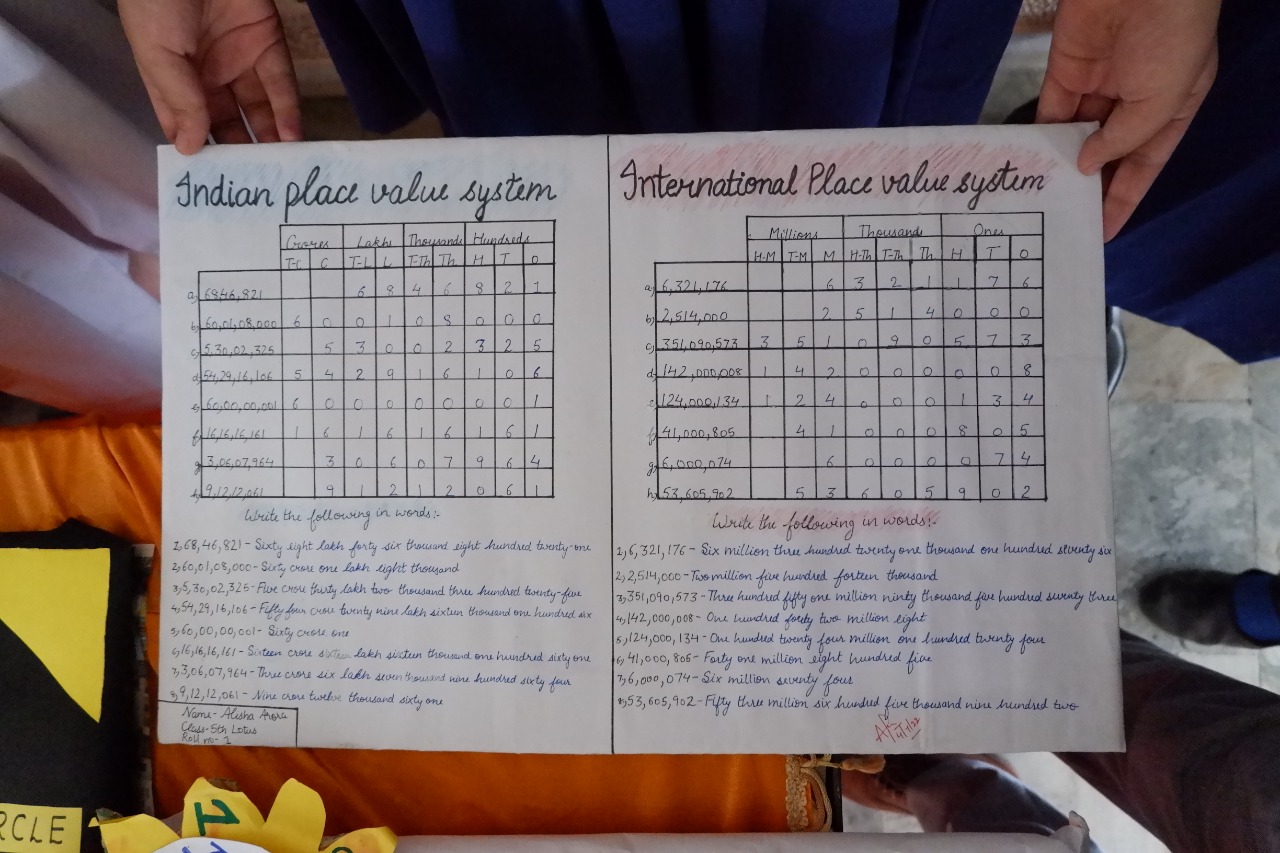 Indian place value system
Crores Lakhs Thousands Hundreds
T-C C T-L L T-Th Th H T O
a) 6846,821 6 8 4 6 8 2 1
b) 60,01,08,000 6 0 0 1 0 8 0 0 0
c) 5,30,02,325 5 3 0 0 2 3 2 5
d) 54,29,16,106 5 4 2 9 1 6 1 0 6
e) 60,00,00,001 6 0 0 0 0 0 0 0 1
f) 16,16,16,161 1 6 1 6 1 6 1 6 1
g) 3,06,07,964 3 0 6 0 7 9 6 4
h) 9,12,12,061 9 1 2 1 2 0 6 1
Write the following in words:-
1, 68,46,821 - Sixty eight lakh forty six thousand eight hundred twenty-one
2, 60,01,08,000 - Sixty crore one lakh eight thousand
3, 5,30,02,325 - Five crore thirty lakh two thousand three hundred twenty-five
4, 54,29,16,106 - Fifty four crore twenty nine lakh sixteen thousand one hundred six
5, 60,00,00,001 - Sixty crore one
6, 16,16,16,161 - Sixteen crore sixteen lakh sixteen thousand one hundred sixty one
7, 3,06,07,964 - Three crore six lakh seven thousand nine hundred sixty four
8, 9,12,12,061 - Nine crore twelve thousand sixty one
Name - Alisha Arora
Class - 5th Lotus
Roll no - 1
International Place value system
Millions Thousands Ones
H-M T-M M H-Th T-Th Th H T O
a) 6,321,176 6 3 2 1 1 7 6
b) 2,514,000 2 5 1 4 0 0 0
c) 351,090,573 3 5 1 0 9 0 5 7 3
d) 142,000,008 1 4 2 0 0 0 0 0 8
e) 124,000,134 1 2 4 0 0 0 1 3 4
f) 41,000,805 4 1 0 0 0 8 0 5
g) 6,000,074 6 0 0 0 0 7 4
h) 53,605,902 5 3 6 0 5 9 0 2
Write the following in words:-
1, 6,321,176 - Six million three hundred twenty one thousand one hundred seventy six
2, 2,514,000 - Two million five hundred forteen thousand
3, 351,090,573 - Three hundred fifty one million ninty thousand five hundred seventy three
4, 142,000,008 - One hundred forty two million eight
5, 124,000,134 - One hundred twenty four million one hundred twenty four
6, 41,000,805 - Forty one million eight hundred five
7, 6,000,074 - Six million seventy four
8, 53,605,902 - Fifty three million six hundred five thousand nine hundred two
RCLE
1